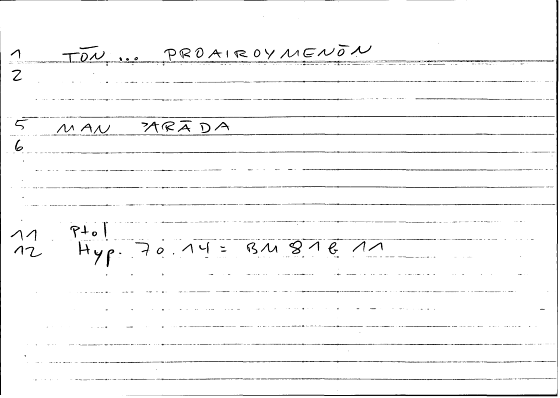 1 TŌN ... PROAIROYMENŌN
2
5 MAN ʾARĀDA
6
11 Ptol
12 Hyp. 70.14 = BM 81b 11